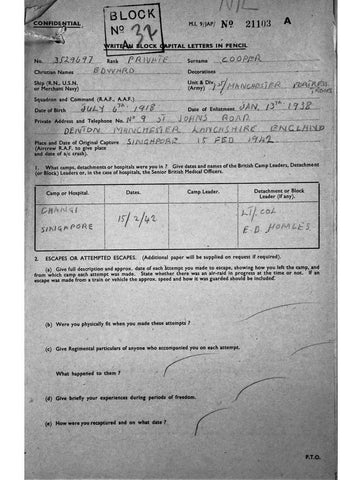 NIL
CONFIDENTIAL
BLOCK
Nº 32
M.I. 9/JAP/ Nº 21103 A
WRITE IN BLOCK CAPITAL LETTERS IN PENCIL
No. 3529697 Rank PRIVATE Surname COOPER
Christian Names EDWARD Decorations
Ship (R.N., U.S.N. or Merchant Navy) Unit & Div. (Army) 1st/MANCHESTER
Squadron and Command (R.A.F., A.A.F.)
Date of Birth JULY 6TH 1918 Date of Enlistment JAN. 13TH 1938
Private Address and Telephone No. Nº 9 ST JOHNS ROAD
DENTON MANCHESTER LANCHSHIRE ENGLAND
Place and Date of Original Capture SINGAPORE 15 FEB 1942
(Aircrew R.A.F. to give place and date of a/c crash).
1. What camps, detachments or hospitals were you in? Give dates and names of the British Camp Leaders, Detachment (or Block) Leaders or, in case of the hospitals, the Senior British Medical Officers.
Camp or Hospital. Dates. Camp Leader. Detachment or Block Leader (if any).
CHANGI
SINGAPORE
15/2/42
LT/COL
E.B HOLMES
2. ESCAPES OR ATTEMPTED ESCAPES. (Additional paper will be supplied on request if required).
(a) Give full description and approx. date of each attempt you made to escape, showing how you left the camp, and from which camp each attempt was made. State whether there was an air-raid in progress at the time or not. If an escape was made from a train or vehicle the approx. speed and how it was guarded should be included.
(b) Were you physically fit when you made these attempts ?
(c) Give Regimental particulars of anyone who accompanied you on each attempt.
What happened to them ?
(d) Give briefly your experiences during periods of freedom.
(e) How were you recaptured and on what date ?
P.T.O.